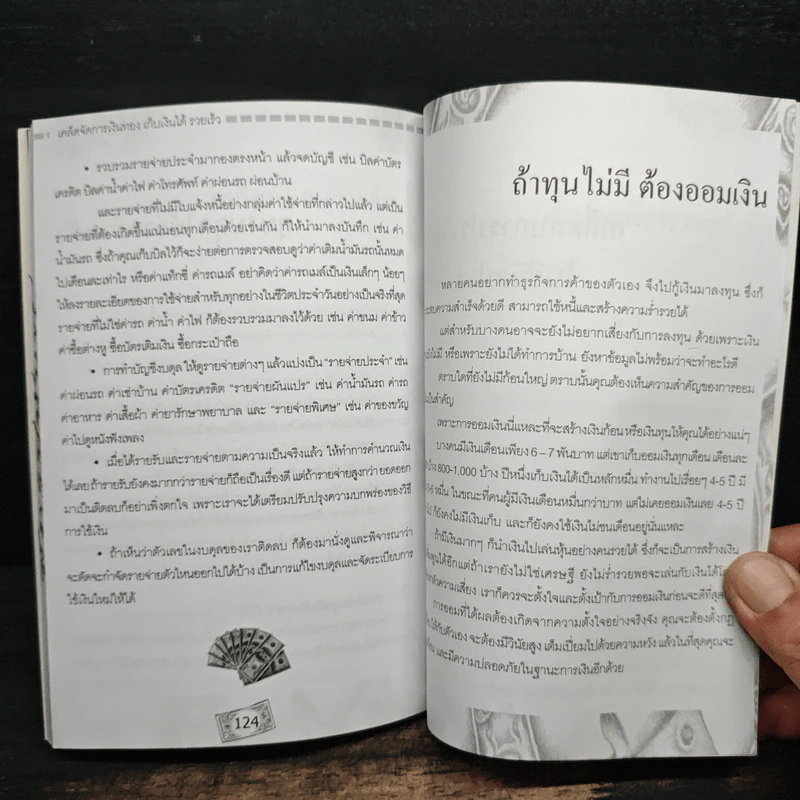 เคล็ดจัดการเงินทอง เก็บเงินได้ รวยเร็ว
• รวบรวมรายจ่ายประจำมากองตรงหน้า แล้วจดบัญชี เช่น บิลค่าบัตร
เครดิต บิลค่าน้ำค่าไฟ ค่าโทรศัพท์ ค่าผ่อนรถ ผ่อนบ้าน
และรายจ่ายที่ไม่มีใบแจ้งหนี้อย่างกลุ่มค่าใช้จ่ายที่กล่าวไปแล้ว แต่เป็น
รายจ่ายที่ต้องเกิดขึ้นแน่นอนทุกเดือนด้วยเช่นกัน ก็ให้นำมาลงบันทึก เช่น ค่า
น้ำมันรถ ซึ่งถ้าคุณเก็บบิลไว้ก็จะง่ายต่อการตรวจสอบดูว่าค่าเติมน้ำมันรถนั้นหมด
ไปเดือนละเท่าไร หรือค่าแท็กซี่ ค่ารถเมล์ อย่าคิดว่าค่ารถเมล์เป็นเงินเล็กๆ น้อยๆ
ให้ลงรายละเอียดของการใช้จ่ายสำหรับทุกอย่างในชีวิตประจำวันอย่างเป็นจริงที่สุด
รายจ่ายที่ไม่ใช่ค่ารถ ค่าน้ำ ค่าไฟ ก็ต้องรวบรวมมาลงไว้ด้วย เช่น ค่าขนม ค่าข้าว
ค่าซื้อต่างหู ซื้อบัตรเติมเงิน ซื้อกระเป๋าถือ
• การทำบัญชีงบดุล ให้ดูรายจ่ายต่างๆ แล้วแบ่งเป็น "รายจ่ายประจำ" เช่น
ค่าผ่อนรถ ค่าเช่าบ้าน ค่าบัตรเครดิต "รายจ่ายผันแปร" เช่น ค่าน้ำมันรถ ค่ารถ
ค่าอาหาร ค่าเสื้อผ้า ค่ายารักษาพยาบาล และ "รายจ่ายพิเศษ" เช่น ค่าของขวัญ
ค่าไปดูหนังฟังเพลง
• เมื่อได้รายรับและรายจ่ายตามความเป็นจริงแล้ว ให้ทำการคำนวณเงิน
ได้เลย ถ้ารายรับยังคงมากกว่ารายจ่ายก็ถือเป็นเรื่องดี แต่ถ้ารายจ่ายสูงกว่า ยอดออก
มาเป็นติดลบก็อย่าเพิ่งตกใจ เพราะเราจะได้เตรียมปรับปรุงความบกพร่องของวิธี
การใช้เงิน
• ถ้าเห็นว่าตัวเลขในงบดุลของเราติดลบ ก็ต้องมานั่งดูและพิจารณาว่า
จะตัดจะกำจัดรายจ่ายตัวไหนออกไปได้บ้าง เป็นการแก้ไขงบดุลและจัดระเบียบการ
ใช้เงินใหม่ให้ได้
124
ถ้าทุนไม่มี ต้องออมเงิน
หลายคนอยากทำธุรกิจการค้าของตัวเอง จึงไปกู้เงินมาลงทุน ซึ่งก็
ความสำเร็จด้วยดี สามารถใช้หนี้และสร้างความร่ำรวยได้
แต่สำหรับบางคนอาจจะยังไม่อยากเสี่ยงกับการลงทุน ด้วยเพราะเงิน
ยังไม่มี หรือเพราะยังไม่ได้ทำการบ้าน ยังหาข้อมูลไม่พร้อมว่าจะทำอะไรดี
ตราบใดที่ยังไม่มีก้อนใหญ่ ตราบนั้นคุณต้องเห็นความสำคัญของการออม
เป็นสำคัญ
เพราะการออมเงินนี่แหละที่จะสร้างเงินก้อน หรือเงินทุนให้คุณได้อย่างแน่ๆ
บางคนมีเงินเดือนเพียง 6 – 7 พันบาท แต่เขาเก็บออมเงินทุกเดือน เดือนละ
800-1,000 บ้าง ปีหนึ่งเก็บเงินได้เป็นหลักหมื่น ทำงานไปเรื่อยๆ 4-5 ปี มี
หมื่น ในขณะที่คนผู้มีเงินเดือนหมื่นกว่าบาท แต่ไม่เคยออมเงินเลย 4-5 ปี
ก็ยังคงไม่มีเงินเก็บ และก็ยังคงใช้เงินไม่ชนเดือนอยู่นั่นแหละ
ถ้ามีเงินมากๆ ก็นำเงินไปเล่นหุ้นอย่างคนรวยได้ ซึ่งก็จะเป็นการสร้างเงิน
ได้อีก แต่ถ้าเรายังไม่ใช่เศรษฐี ยังไม่ร่ำรวยพอจะเล่นกับเงินได้
ความเสี่ยง เราก็ควรจะตั้งใจและตั้งเป้ากับการออมเงินก่อนจะดีที่สุด
การออมที่ได้ผลต้องเกิดจากความตั้งใจอย่างจริงจัง คุณจะต้องตั้งกฎ
ให้กับตัวเอง จะต้องมีวินัยสูง เต็มเปี่ยมไปด้วยความหวัง แล้วในที่สุดคุณจะ
และมีความปลอดภัยในฐานะการเงินอีกด้วย